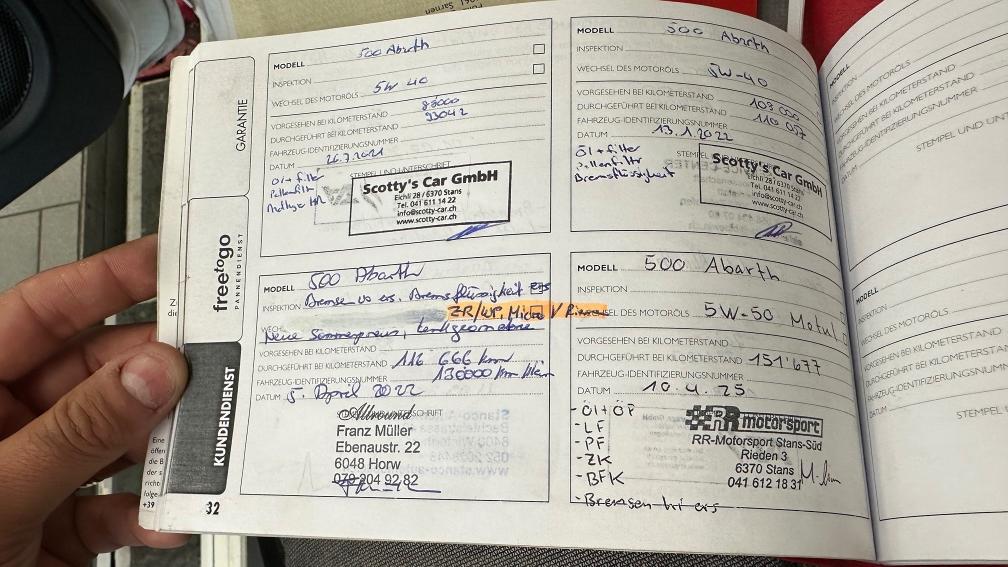 Sarnen
GARANTIE
freetogo
PANNENDIENST
KUNDENDIENST
32
MODELL 500 Abarth
INSPEKTION
WECHSEL DES MOTORÖLS 5W 40
VORGESEHEN BEI KILOMETERSTAND
DURCHGEFÜHRT BEI KILOMETERSTAND 93042
FAHRZEUG-IDENTIFIZIERUNGSNUMMER
DATUM 26.7.2021
STEMPEL UND UNTERSCHRIFT
Öl + filter
Pollenfilter
Scotty's Car GmbH
Eichli 28 / 6370 Stans
Tel. 041 611 14 22
info@scotty-car.ch
www.scotty-car.ch
MODELL 500 Abarth
INSPEKTION
WECHSEL DES MOTORÖLS 5W-40
VORGESEHEN BEI KILOMETERSTAND 103 000
DURCHGEFÜHRT BEI KILOMETERSTAND 110 057
FAHRZEUG-IDENTIFIZIERUNGSNUMMER
DATUM 13.1.2022
STEMPEL
Öl + filter
Pollenfilter
Bremsflüssigkeit
Scotty's Car GmbH
Eichli 28 / 6370 Stans
Tel. 041 611 14 22
info@scotty-car.ch
www.scotty-car.ch
MODELL 500 Abarth
INSPEKTION Bremse vo ers. Bremsflüssigkeit ers
ZR/WP, Micro V Riemen
Neue Sommerpneus,
VORGESEHEN BEI KILOMETERSTAND
DURCHGEFÜHRT BEI KILOMETERSTAND 116 666 km
FAHRZEUG-IDENTIFIZIERUNGSNUMMER 130000 km
DATUM 5. April 2022
Allround
Franz Müller
Ebenaustr. 22
6048 Horw
079 204 92 82
MODELL 500 Abarth
INSPEKTION
WECHSEL DES MOTORÖLS 5W-50 Motul
VORGESEHEN BEI KILOMETERSTAND
DURCHGEFÜHRT BEI KILOMETERSTAND 151'677
FAHRZEUG-IDENTIFIZIERUNGSNUMMER
DATUM 10.4.25
- Öl + ÖF
- LF
- PF
- ZK
- BFK
- Bremsen hi ers
RR motorsport
RR-Motorsport Stans-Süd
Rieden 3
6370 Stans
041 612 18 31
MODELL
INSPEKTION
WECHSEL DES MOTORÖLS
VORGESEHEN BEI KILOMETERSTAND
DURCHGEFÜHRT BEI KILOMETERSTAND
FAHRZEUG-IDENTIFIZIERUNGSNUMMER
DATUM
STEMPEL UND
MODELL
INSPEKTION
WECHSEL DES MOTORÖLS
VORGESEHEN BEI KILOMETERSTAND
DURCHGEFÜHRT BEI KILOMETERSTAND
FAHRZEUG-IDENTIFIZIERUNGSNUMMER
DATUM
STEMPEL